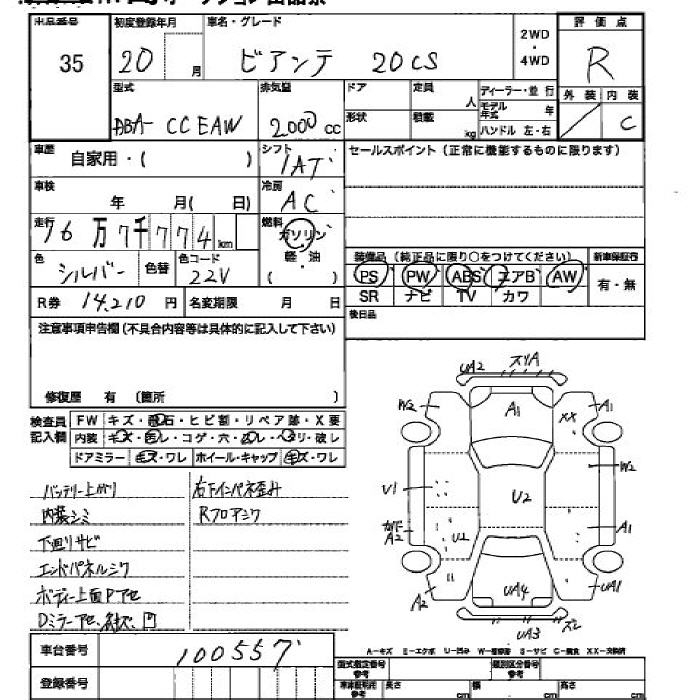 出品番号 初度登録年月 車名・グレード 2WD・4WD 評価点
35 20 月 ビアンテ 20CS R
型式 排気量 ドア 定員 人 ディーラー・並行 外装 内装
DBA- CCEAW 2000 cc 形状 積載 kg モデル年式 年 ハンドル 左・右 C
車歴 自家用・( ) シフト 1AT セールスポイント(正常に機能するものに限ります)
車検 年 月( 日) 冷房 AC
走行 万 7千774 km 燃料 ガソリン 軽・油 ( )
装備品(純正品に限り○をつけてください) 新車保証書
色 シルバー 色替 色コード 22V PS PW ABS エアB AW 有・無
R券 14,210 円 名変期限 月 日 SR ナビ TV カワ
注意事項申告欄(不具合内容等は具体的に記入して下さい) 後日品
修復歴 有 (箇所 )
検査員記入欄 FW キズ・飛石・ヒビ割・リペア跡・X要
内装 キズ・汚レ・コゲ・穴・ヌレ・ヘタリ・破レ
ドアミラー キズ・ワレ ホイール・キャップ キズ・ワレ
バッテリー上がり 右下インパネ歪み
内装シミ Rフロアシワ
下廻りサビ
エンドパネルシワ
ボディー上面Pアセ
Dミラーアセ、
UA2 スリA
W2 A1 XX A1
W2
U1 U2
カド下 A2 U1 A1
A2 UA4 UA1
UA3 ズレ
A-キズ E-エクボ U-凹み W-補修跡 S-サビ C-腐食 XX-交換済
車台番号 100557 型式指定番号 参考 類別区分番号 参考
登録番号 長さ cm 幅 cm 高さ cm